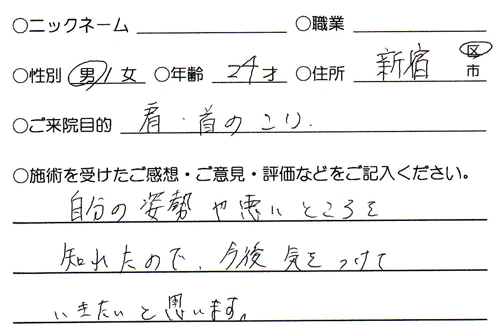 ○ニックネーム ○職業
○性別 男/女 ○年齢 24才 ○住所 新宿 区市
○ご来院目的 肩・首のこり.
○施術を受けたご感想・ご意見・評価などをご記入ください。
自分の姿勢や悪いところを
知れたので、今後気をつけて
いきたいと思います。